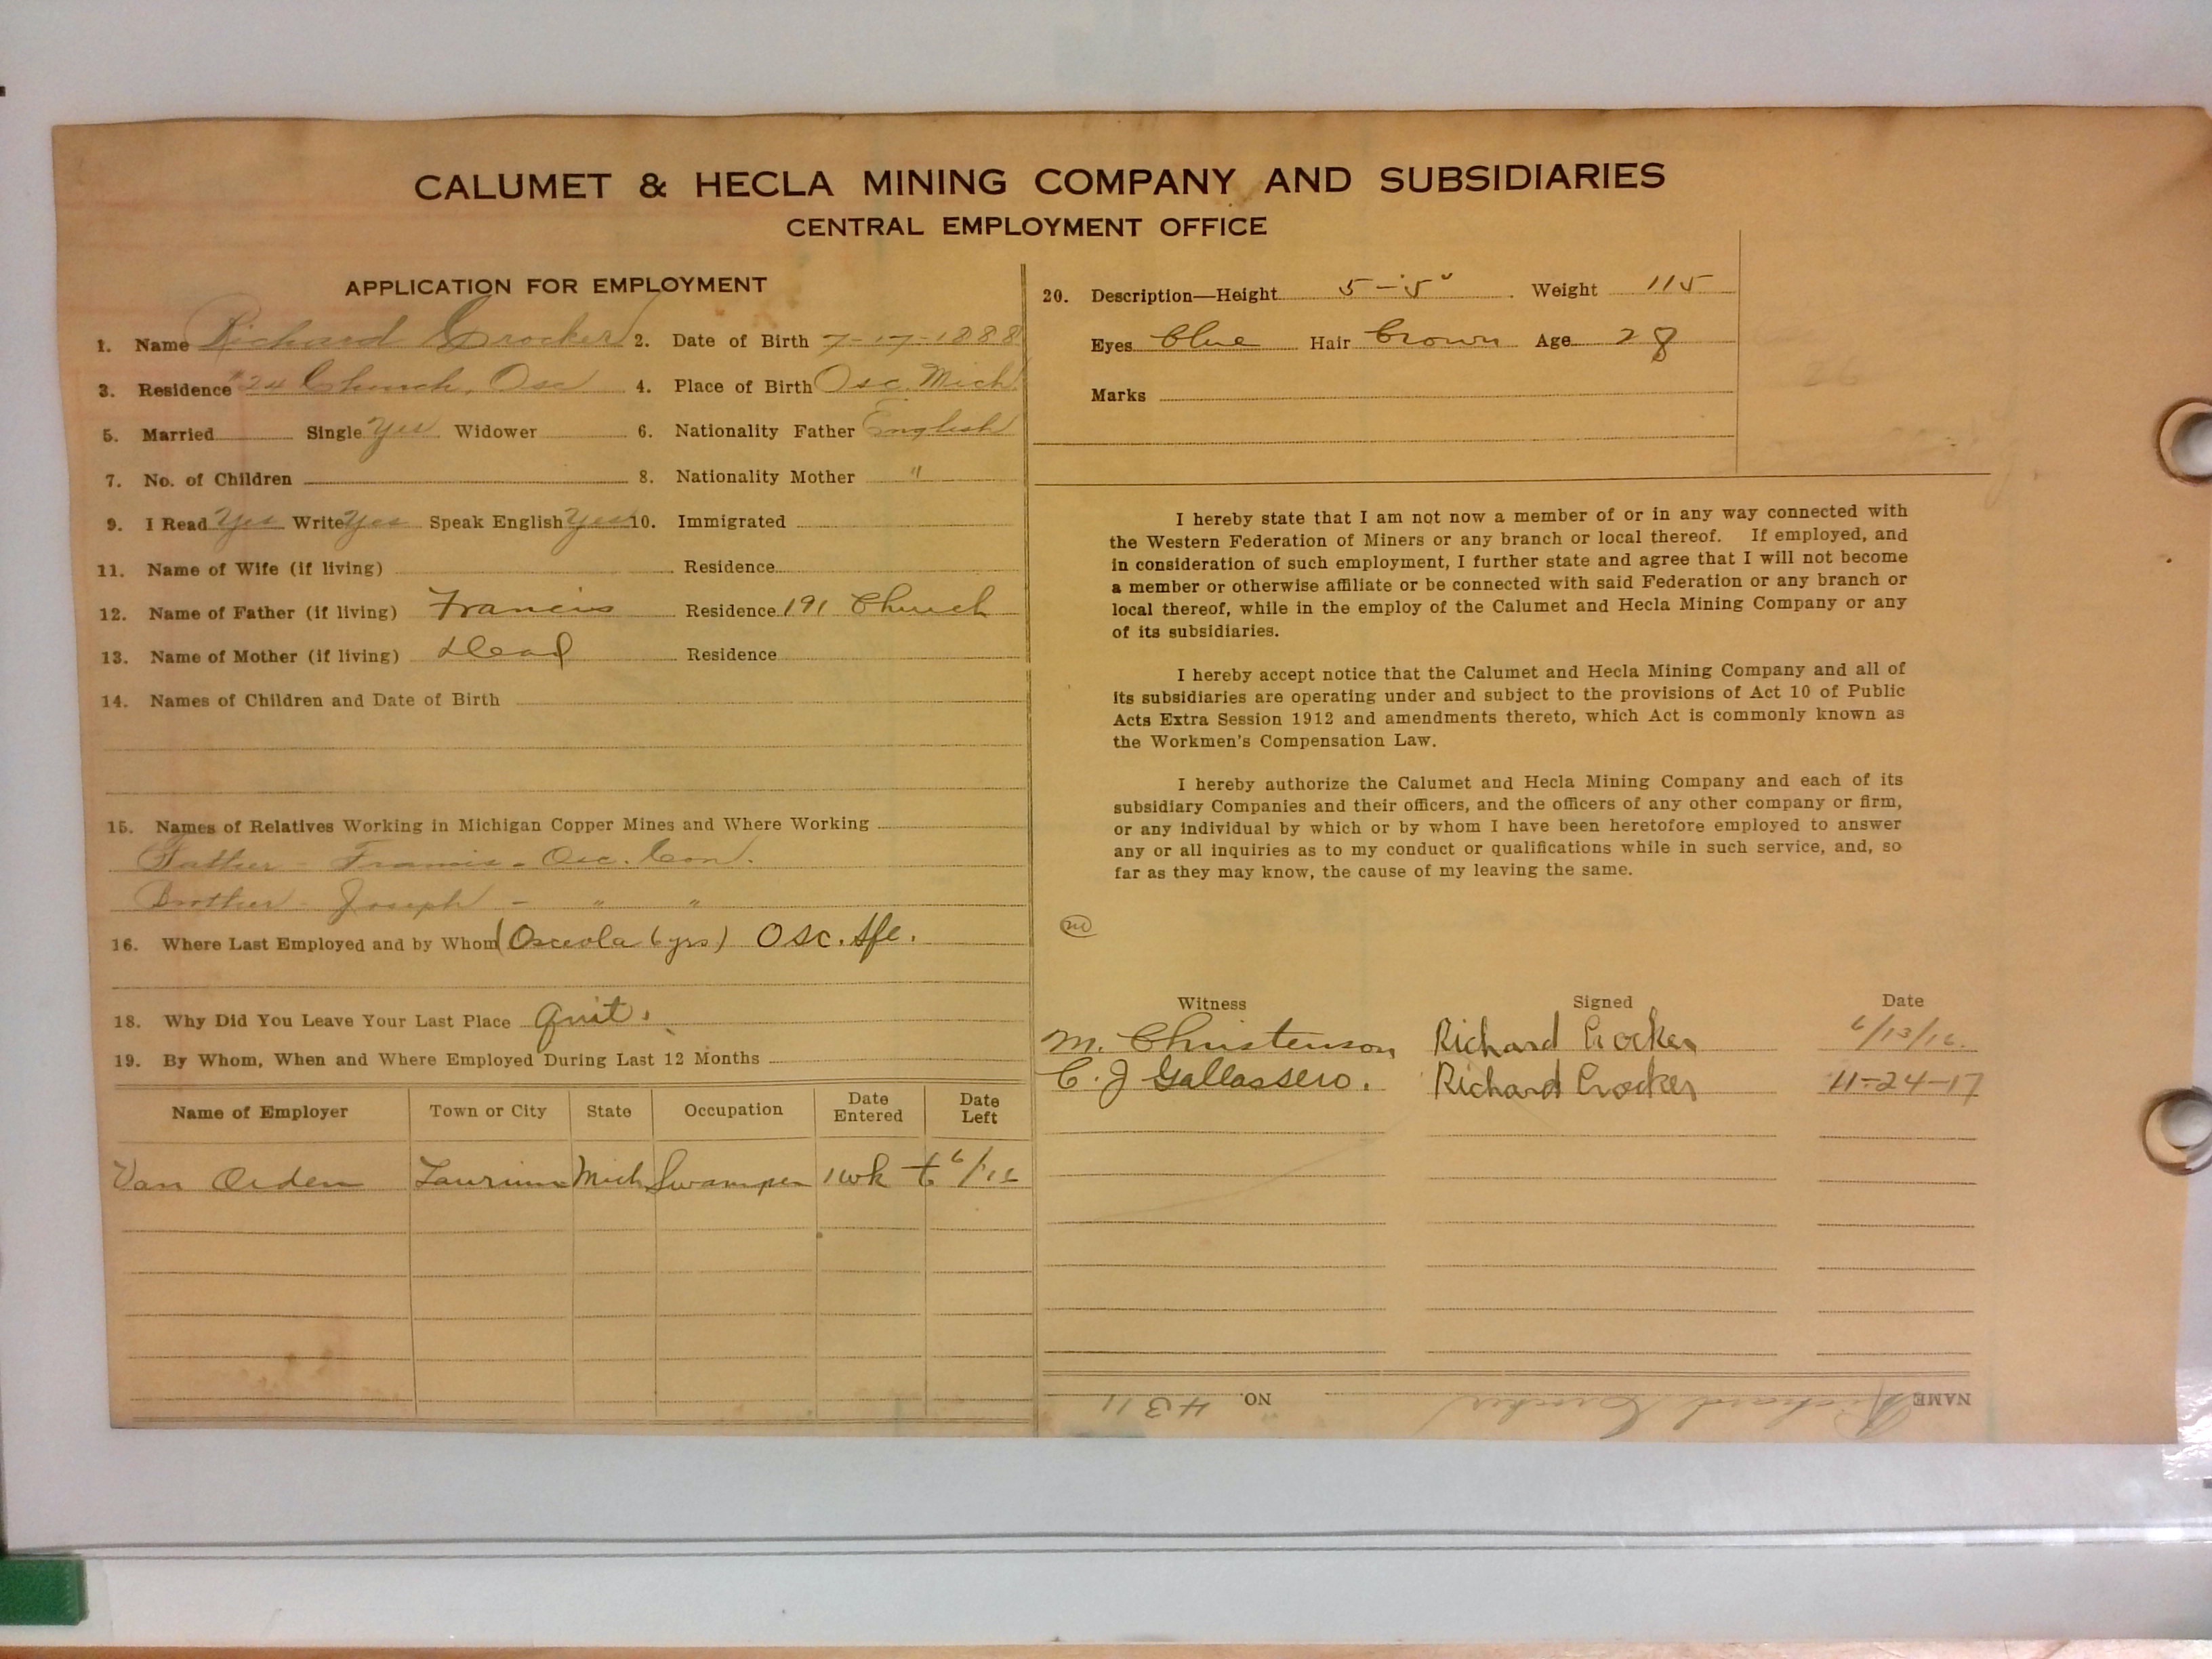 CALUMET & HECLA MINING COMPANY AND SUBSIDIARIES
CENTRAL EMPLOYMENT OFFICE
APPLICATION FOR EMPLOYMENT
1. Name Richard Crocker 2. Date of Birth 7-17-1888
3. Residence 24 Church, Osc 4. Place of Birth Osc. Mich
5. Married Single Yes Widower 6. Nationality Father English
7. No. of Children 8. Nationality Mother "
9. I Read Yes Write Yes Speak English Yes 10. Immigrated
11. Name of Wife (if living) Residence
12. Name of Father (if living) Francis Residence 191 Church
13. Name of Mother (if living) Dead Residence
14. Names of Children and Date of Birth
15. Names of Relatives Working in Michigan Copper Mines and Where Working
Father - Francis - Osc. Con.
Brother - Joseph - " "
16. Where Last Employed and by Whom (Osceola 6 yrs) Osc.
18. Why Did You Leave Your Last Place quit.
19. By Whom, When and Where Employed During Last 12 Months
Name of Employer Town or City State Occupation Date Entered Date Left
Van Orden Laurium Mich Swamper 1 wk to 6/16
20. Description—Height 5-5" Weight 115
Eyes blue Hair brown Age 28
Marks
I hereby state that I am not now a member of or in any way connected with
the Western Federation of Miners or any branch or local thereof. If employed, and
in consideration of such employment, I further state and agree that I will not become
a member or otherwise affiliate or be connected with said Federation or any branch or
local thereof, while in the employ of the Calumet and Hecla Mining Company or any
of its subsidiaries.
I hereby accept notice that the Calumet and Hecla Mining Company and all of
its subsidiaries are operating under and subject to the provisions of Act 10 of Public
Acts Extra Session 1912 and amendments thereto, which Act is commonly known as
the Workmen's Compensation Law.
I hereby authorize the Calumet and Hecla Mining Company and each of its
subsidiary Companies and their officers, and the officers of any other company or firm,
or any individual by which or by whom I have been heretofore employed to answer
any or all inquiries as to my conduct or qualifications while in such service, and, so
far as they may know, the cause of my leaving the same.
Witness Signed Date
M. Christenson Richard Crocker 6/13/16.
C. J Gallassero. Richard Crocker 11-24-17
NAME Richard Crocker NO. 4311